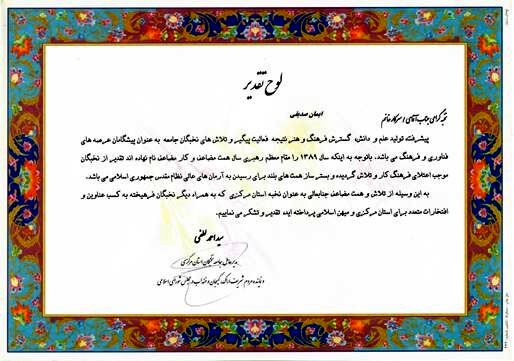 لوح تقدیر
نخبه گرامی جناب آقای / سرکار خانم ایمان صدیقی
پیشرفته تولید علم و دانش، گسترش فرهنگ و هنر نتیجه فعالیت پیگیر و تلاش های نخبگان جامعه به عنوان پیشگامان عرصه های
فناوری و فرهنگی می باشد. باتوجه به اینکه سال ۱۳۸۹ را مقام معظم رهبری سال همت مضاعف و کار مضاعف نام نهاده اند تقدیر از نخبگان
موجب اعتلای فرهنگ کار و تلاش گردیده و بستر ساز همت های بلند برای رسیدن به آرمان های عالی نظام مقدس جمهوری اسلامی می باشد.
به این وسیله از تلاش و همت مضاعف جنابعالی به عنوان نخبه استان مرکزی که به همراه دیگر نخبگان فرهیخته به کسب عناوین و
افتخارات متعدد برای استان مرکزی و میهن اسلامی پرداخته اید، تقدیر و تشکر می نماییم.
سید احمد لطفی
مدیرعامل جامعه نخبگان استان مرکزی
و نماینده مردم شریف اراک، کمیجان و خنداب در مجلس شورای اسلامی